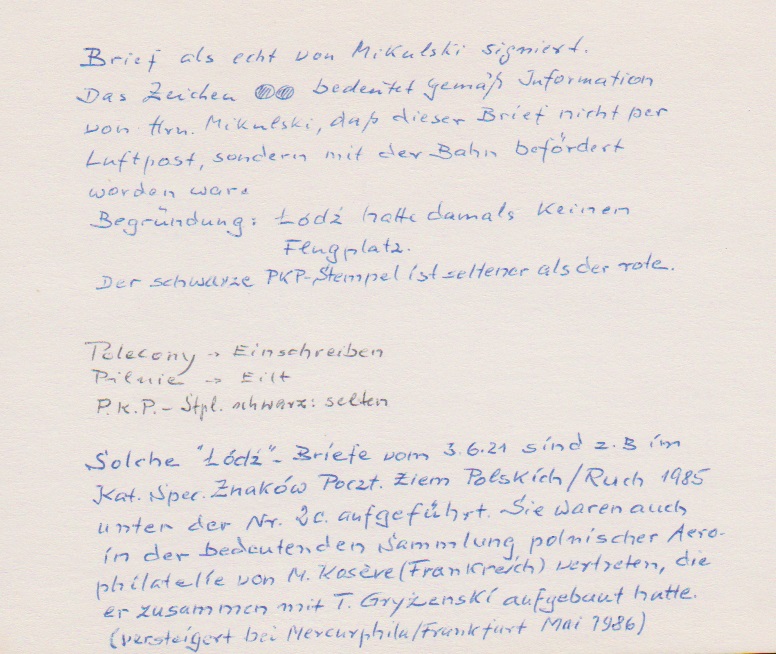 Brief als echt von Mikulski signiert.
Das Zeichen bedeutet gemäß Information
von Hrn. Mikulski, daß dieser Brief nicht per
Luftpost, sondern mit der Bahn befördert
worden war.
Begründung: Łódź hatte damals keinen
Flugplatz.
Der schwarze PKP-Stempel ist seltener als der rote.
Polecony → Einschreiben
Pilnie → Eilt
P.K.P.-Stpl. schwarz: selten
Solche "Łódź"-Briefe vom 3.6.21 sind z.B im
Kat. Spec. Znaków Poczt. Ziem Polskich/Ruch 1985
unter der Nr. 2c. aufgeführt. Sie waren auch
in der bedeutenden Sammlung polnischer Aero-
philatelie von M. (Frankreich) vertreten, die
er zusammen mit T. Gryżewski aufgebaut hatte.
(versteigert bei Mercurphila/Frankfurt Mai 1986)